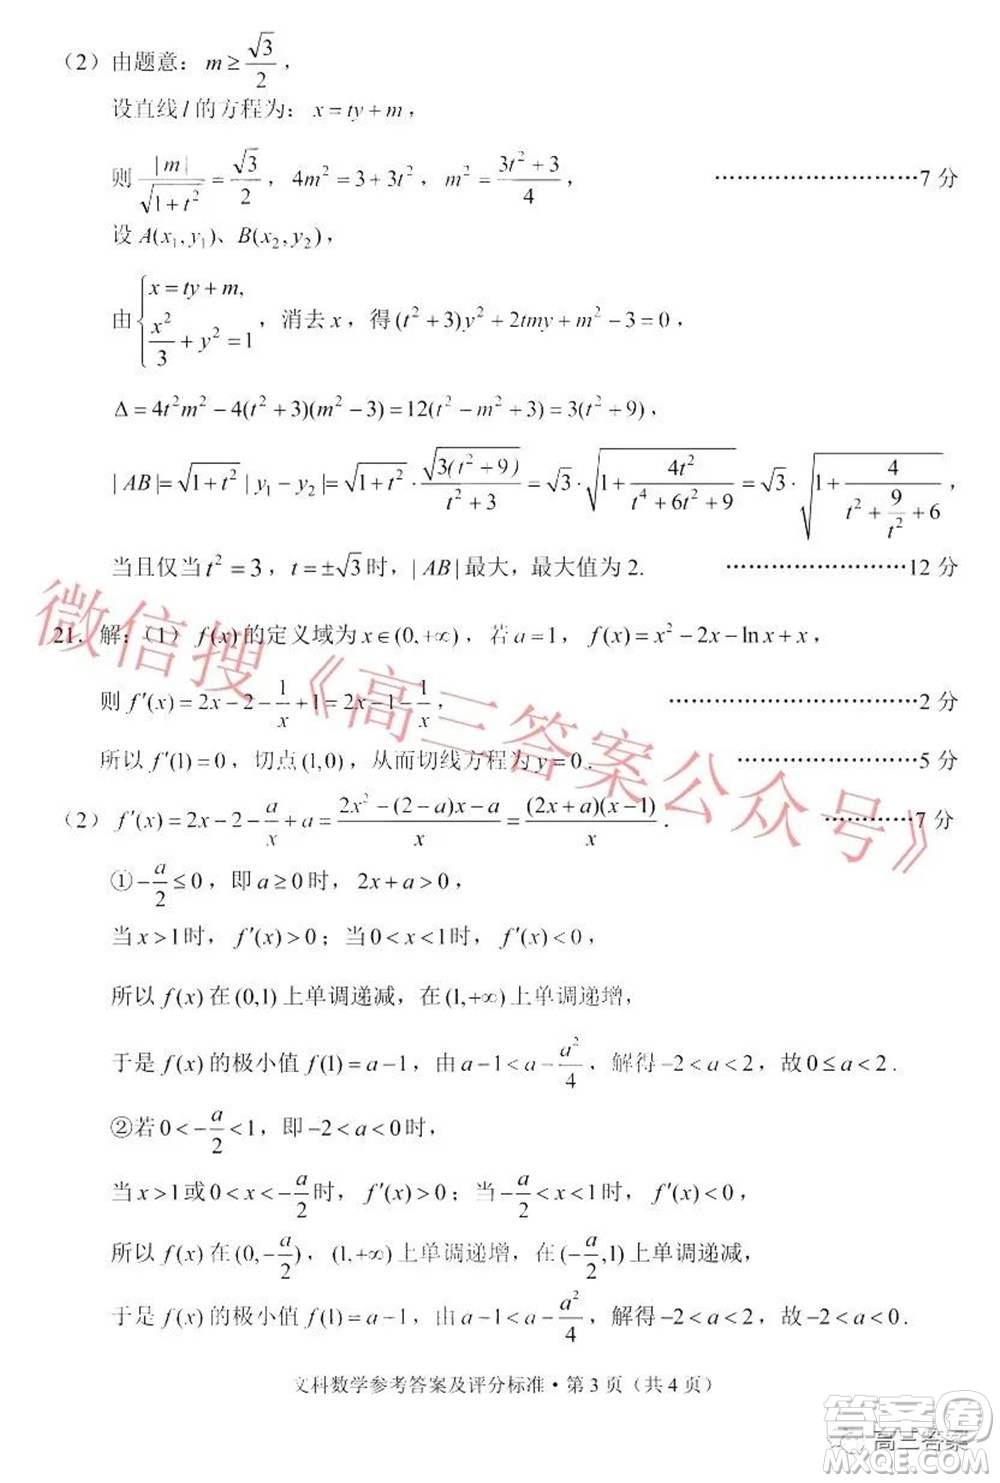 (2) 由题意: m ≥ √3/2,
设直线 l 的方程为: x = ty + m,
则 |m|/√(1+t²) = √3/2, 4m² = 3+3t², m² = (3t²+3)/4, ………………………7 分
设 A(x₁,y₁)、B(x₂,y₂),
由 { x = ty + m, x²/3 + y² = 1 , 消去 x, 得 (t²+3)y² + 2tmy + m² − 3 = 0,
Δ = 4t²m² − 4(t²+3)(m²−3) = 12(t² − m² + 3) = 3(t²+9),
|AB| = √(1+t²) |y₁ − y₂| = √(1+t²) · √(3(t²+9))/(t²+3) = √3 · √(1 + 4t²/(t⁴+6t²+9)) = √3 · √(1 + 4/(t² + 9/t² + 6)),
当且仅当 t² = 3, t = ±√3 时, |AB| 最大, 最大值为 2. ……………………12 分
21. 解: (1) f(x) 的定义域为 x∈(0,+∞), 若 a = 1, f(x) = x² − 2x − ln x + x,
则 f′(x) = 2x − 2 − 1/x + 1 = 2x − 1 − 1/x, ………………………2 分
所以 f′(1) = 0, 切点 (1,0), 从而切线方程为 y = 0. ………………………5 分
(2) f′(x) = 2x − 2 − a/x + a = (2x² − (2−a)x − a)/x = ((2x+a)(x−1))/x. …………7 分
① −a/2 ≤ 0, 即 a ≥ 0 时, 2x + a > 0,
当 x > 1 时, f′(x) > 0; 当 0 < x < 1 时, f′(x) < 0,
所以 f(x) 在 (0,1) 上单调递减, 在 (1,+∞) 上单调递增,
于是 f(x) 的极小值 f(1) = a − 1, 由 a − 1 < a − a²/4, 解得 −2 < a < 2, 故 0 ≤ a < 2.
②若 0 < −a/2 < 1, 即 −2 < a < 0 时,
当 x > 1 或 0 < x < −a/2 时, f′(x) > 0; 当 −a/2 < x < 1 时, f′(x) < 0,
所以 f(x) 在 (0,−a/2), (1,+∞) 上单调递增, 在 (−a/2,1) 上单调递减,
于是 f(x) 的极小值 f(1) = a − 1, 由 a − 1 < a − a²/4, 解得 −2 < a < 2, 故 −2 < a < 0.
文科数学参考答案及评分标准·第 3 页 (共 4 页)
微信搜《高三答案公众号》
答案卷
高三答案
MXQE.COM